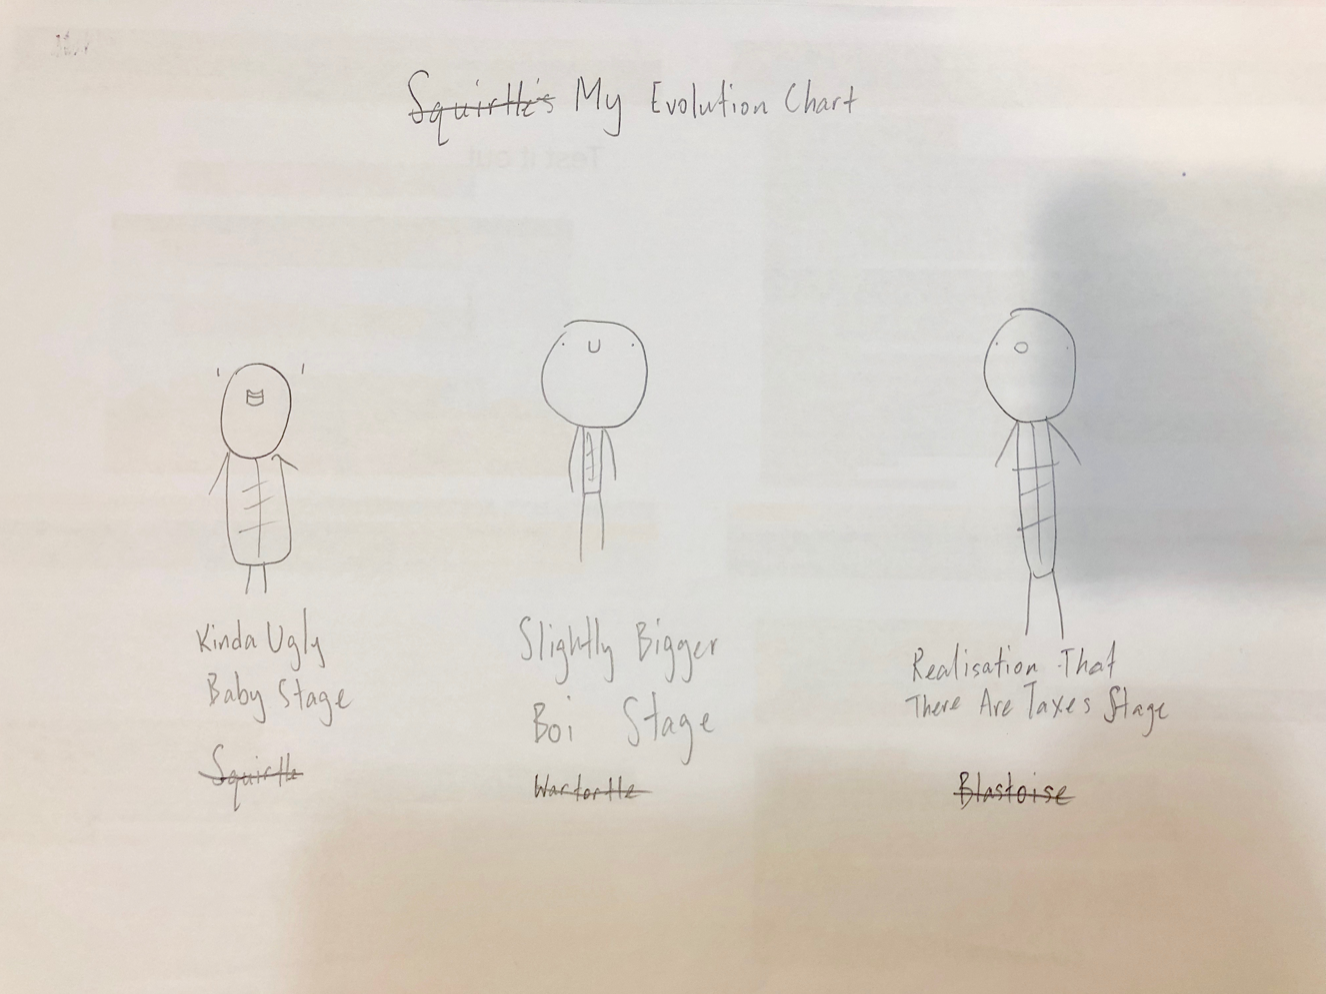 Squirtle's My Evolution Chart
Kinda Ugly
Baby Stage
Squirtle
Slightly Bigger
Boi Stage
Wartortle
Realisation That
There Are Taxes Stage
Blastoise